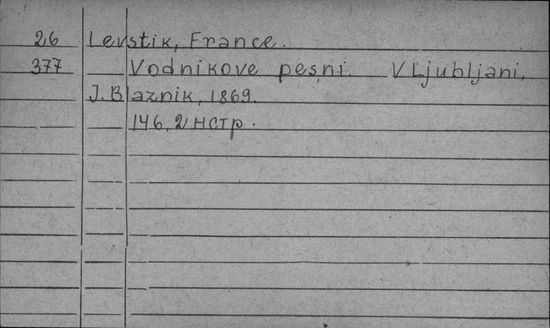 26 Levstik, France.
377 Vodnikove pesni. V Ljubljani,
J. Blaznik, 1869.
146, 2 нстр.